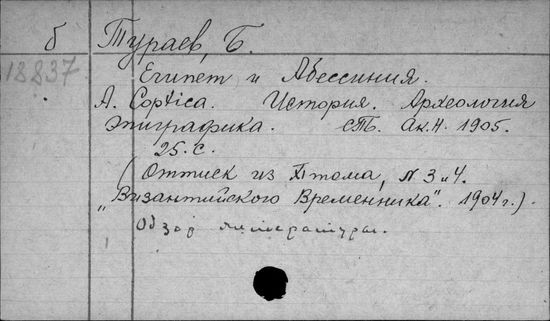 б Тураев, Б.
18837
Египет и Абессиния.
A. Coptica. История. Археология
эпиграфика. СТБ. Ак.Н. 1905.
25.с.
(Оттиск из XI тома, N 3 и 4.
„Византийского Временника". 1904 г.).
Обзор литературы.